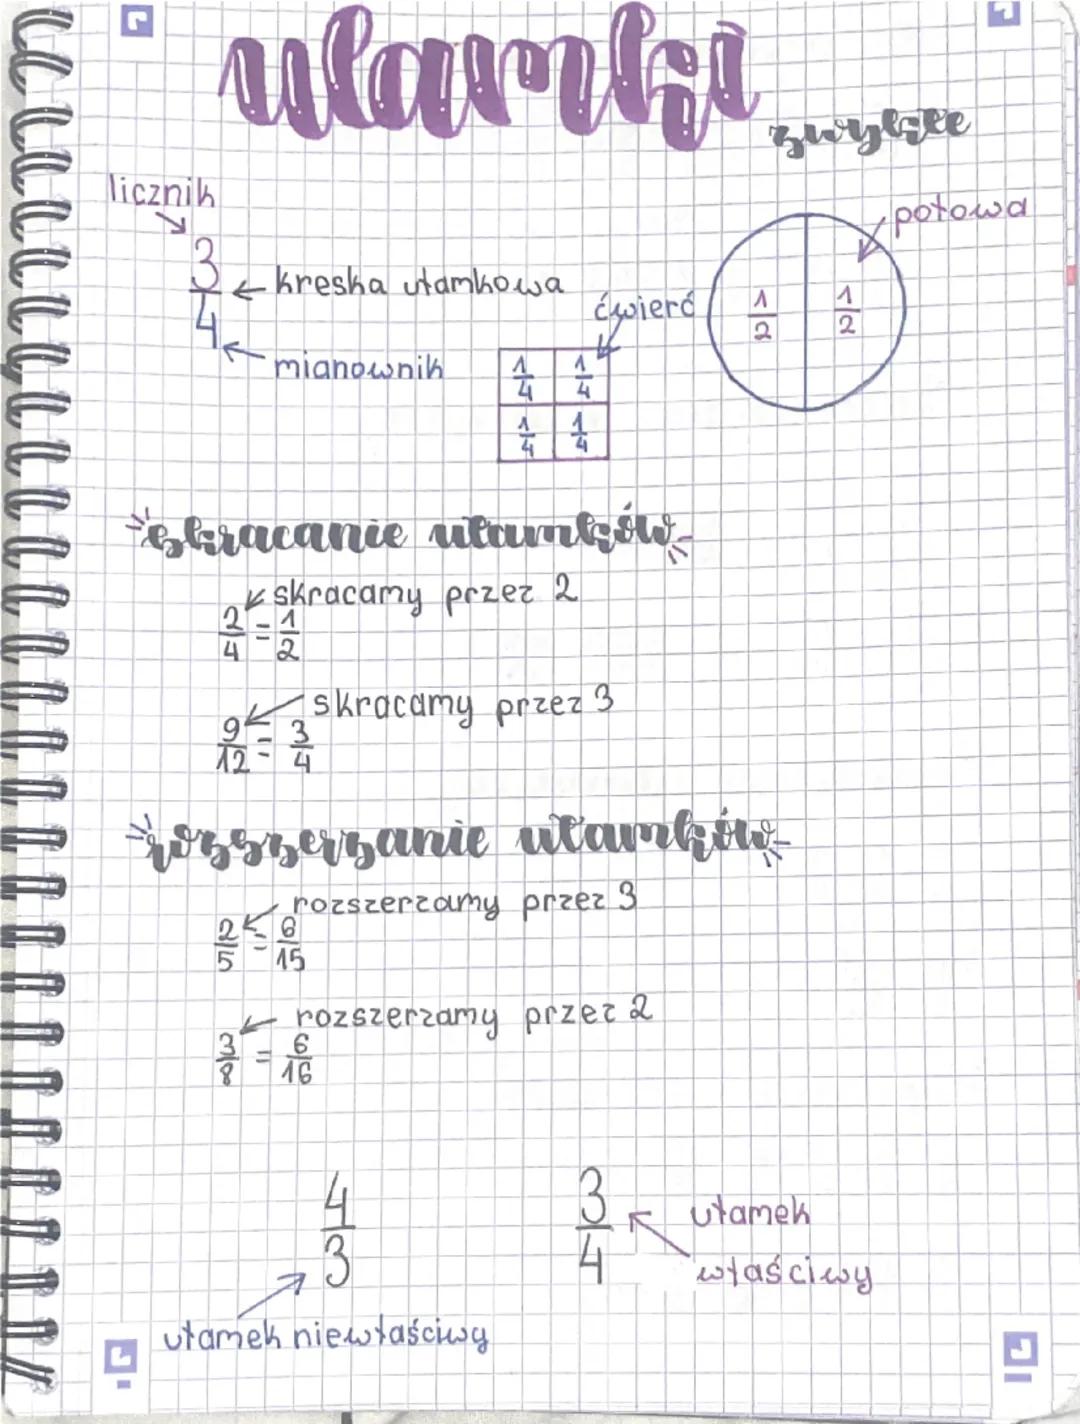 ułamki
zwykłe
licznik
połowa
3
4
kreska ułamkowa
ćwierć
mianownik
1/2 1/2
1/4 1/4
1/4 1/4
skracanie ułamków
skracamy przez 2
2/4 = 1/2
skracamy przez 3
9/12 = 3/4
rozszerzanie ułamków
rozszerzamy przez 3
2/5 = 6/15
rozszerzamy przez 2
3/8 = 6/16
4/3 3/4
ułamek
właściwy
ułamek niewłaściwy